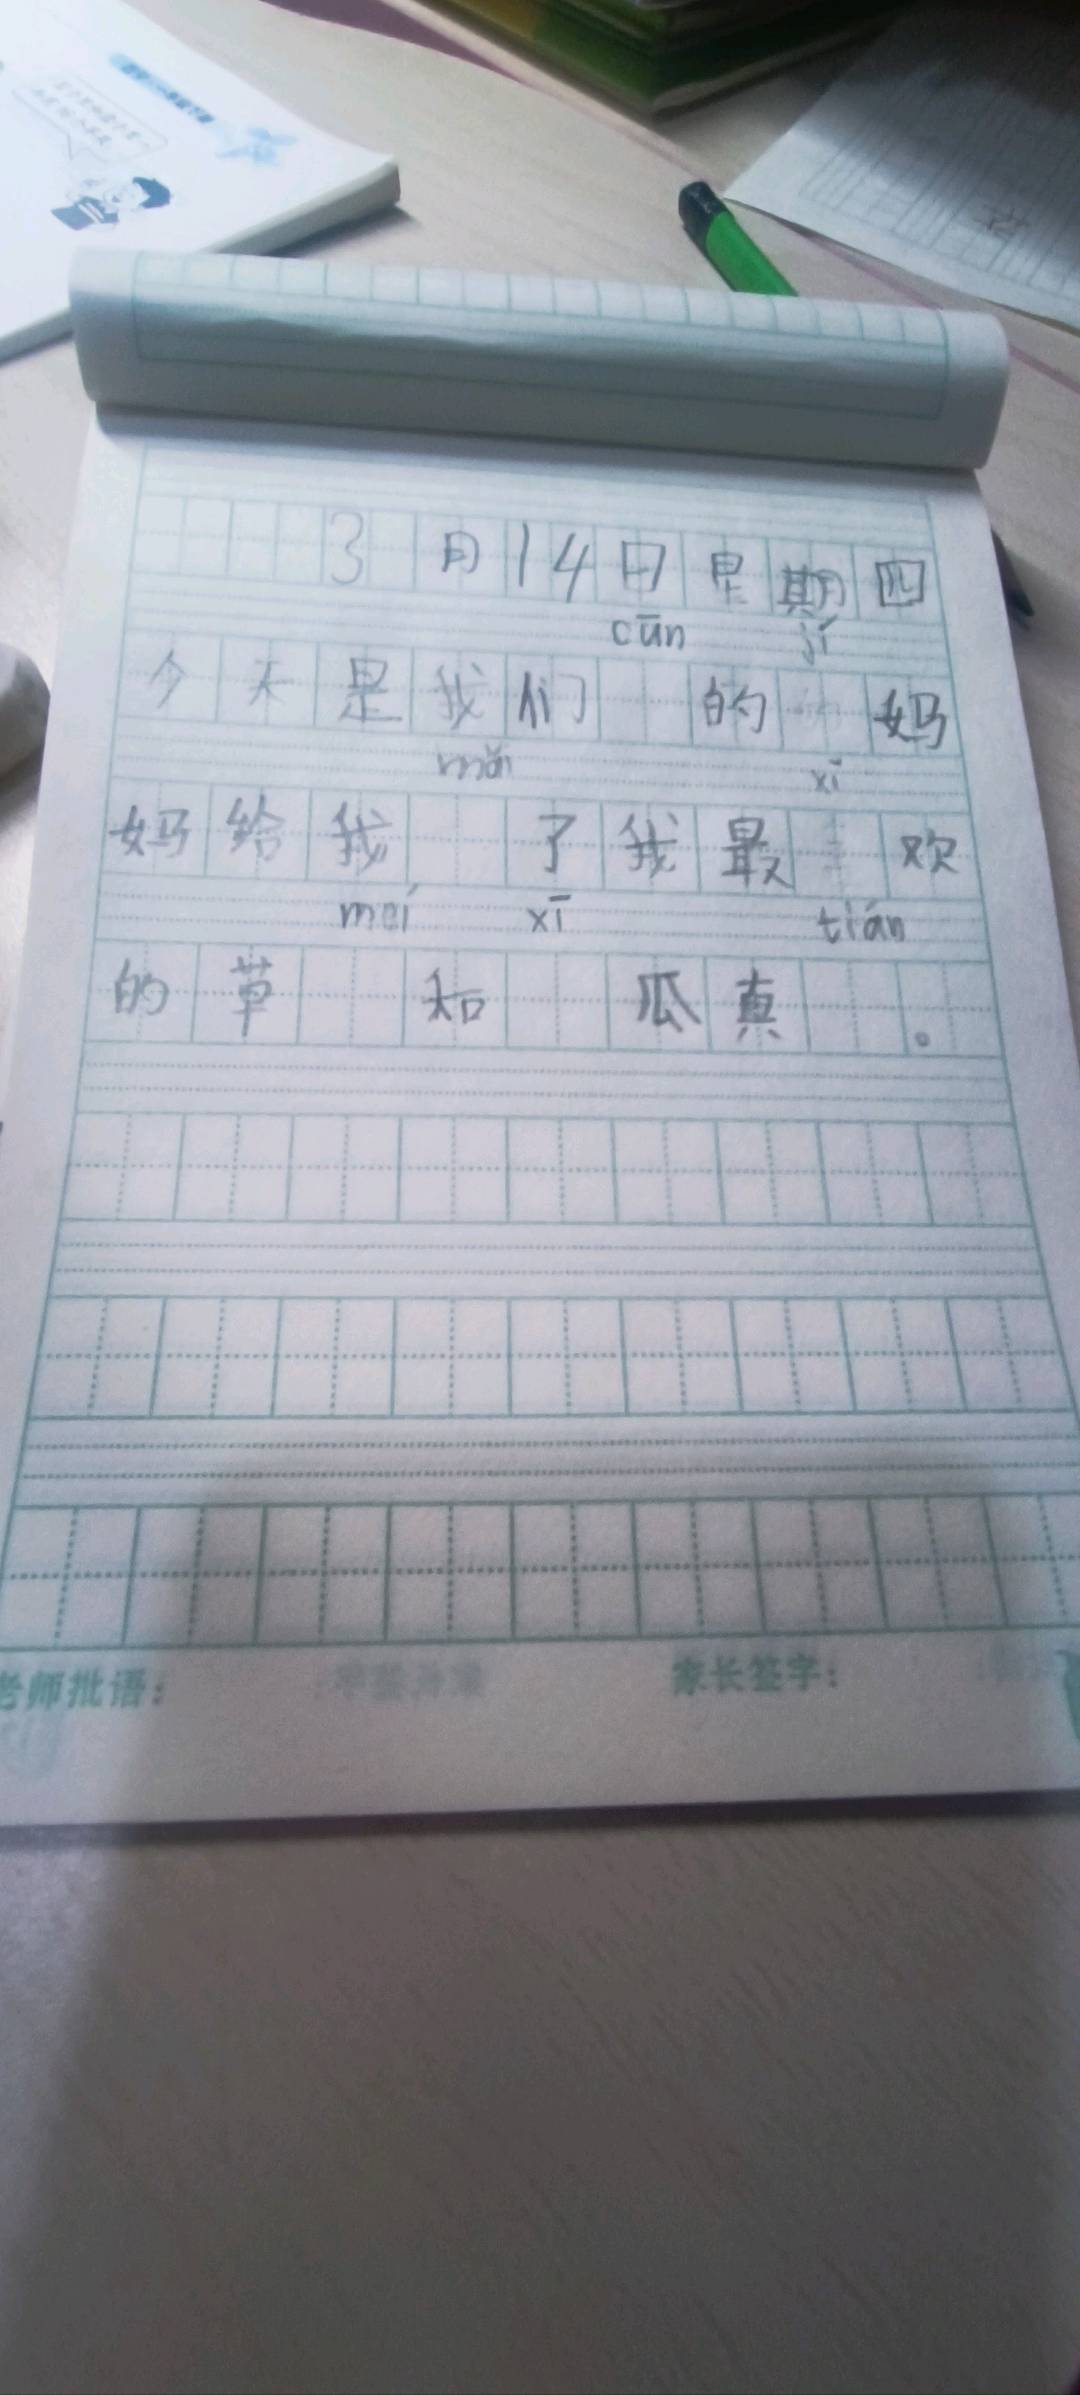 3月14日星期四
cūn jí
今天是我们 的 妈
mǎi xī
妈给我 了我最 欢
meí xī tián
的草 和 瓜真 。
老师批语：
家长签字：